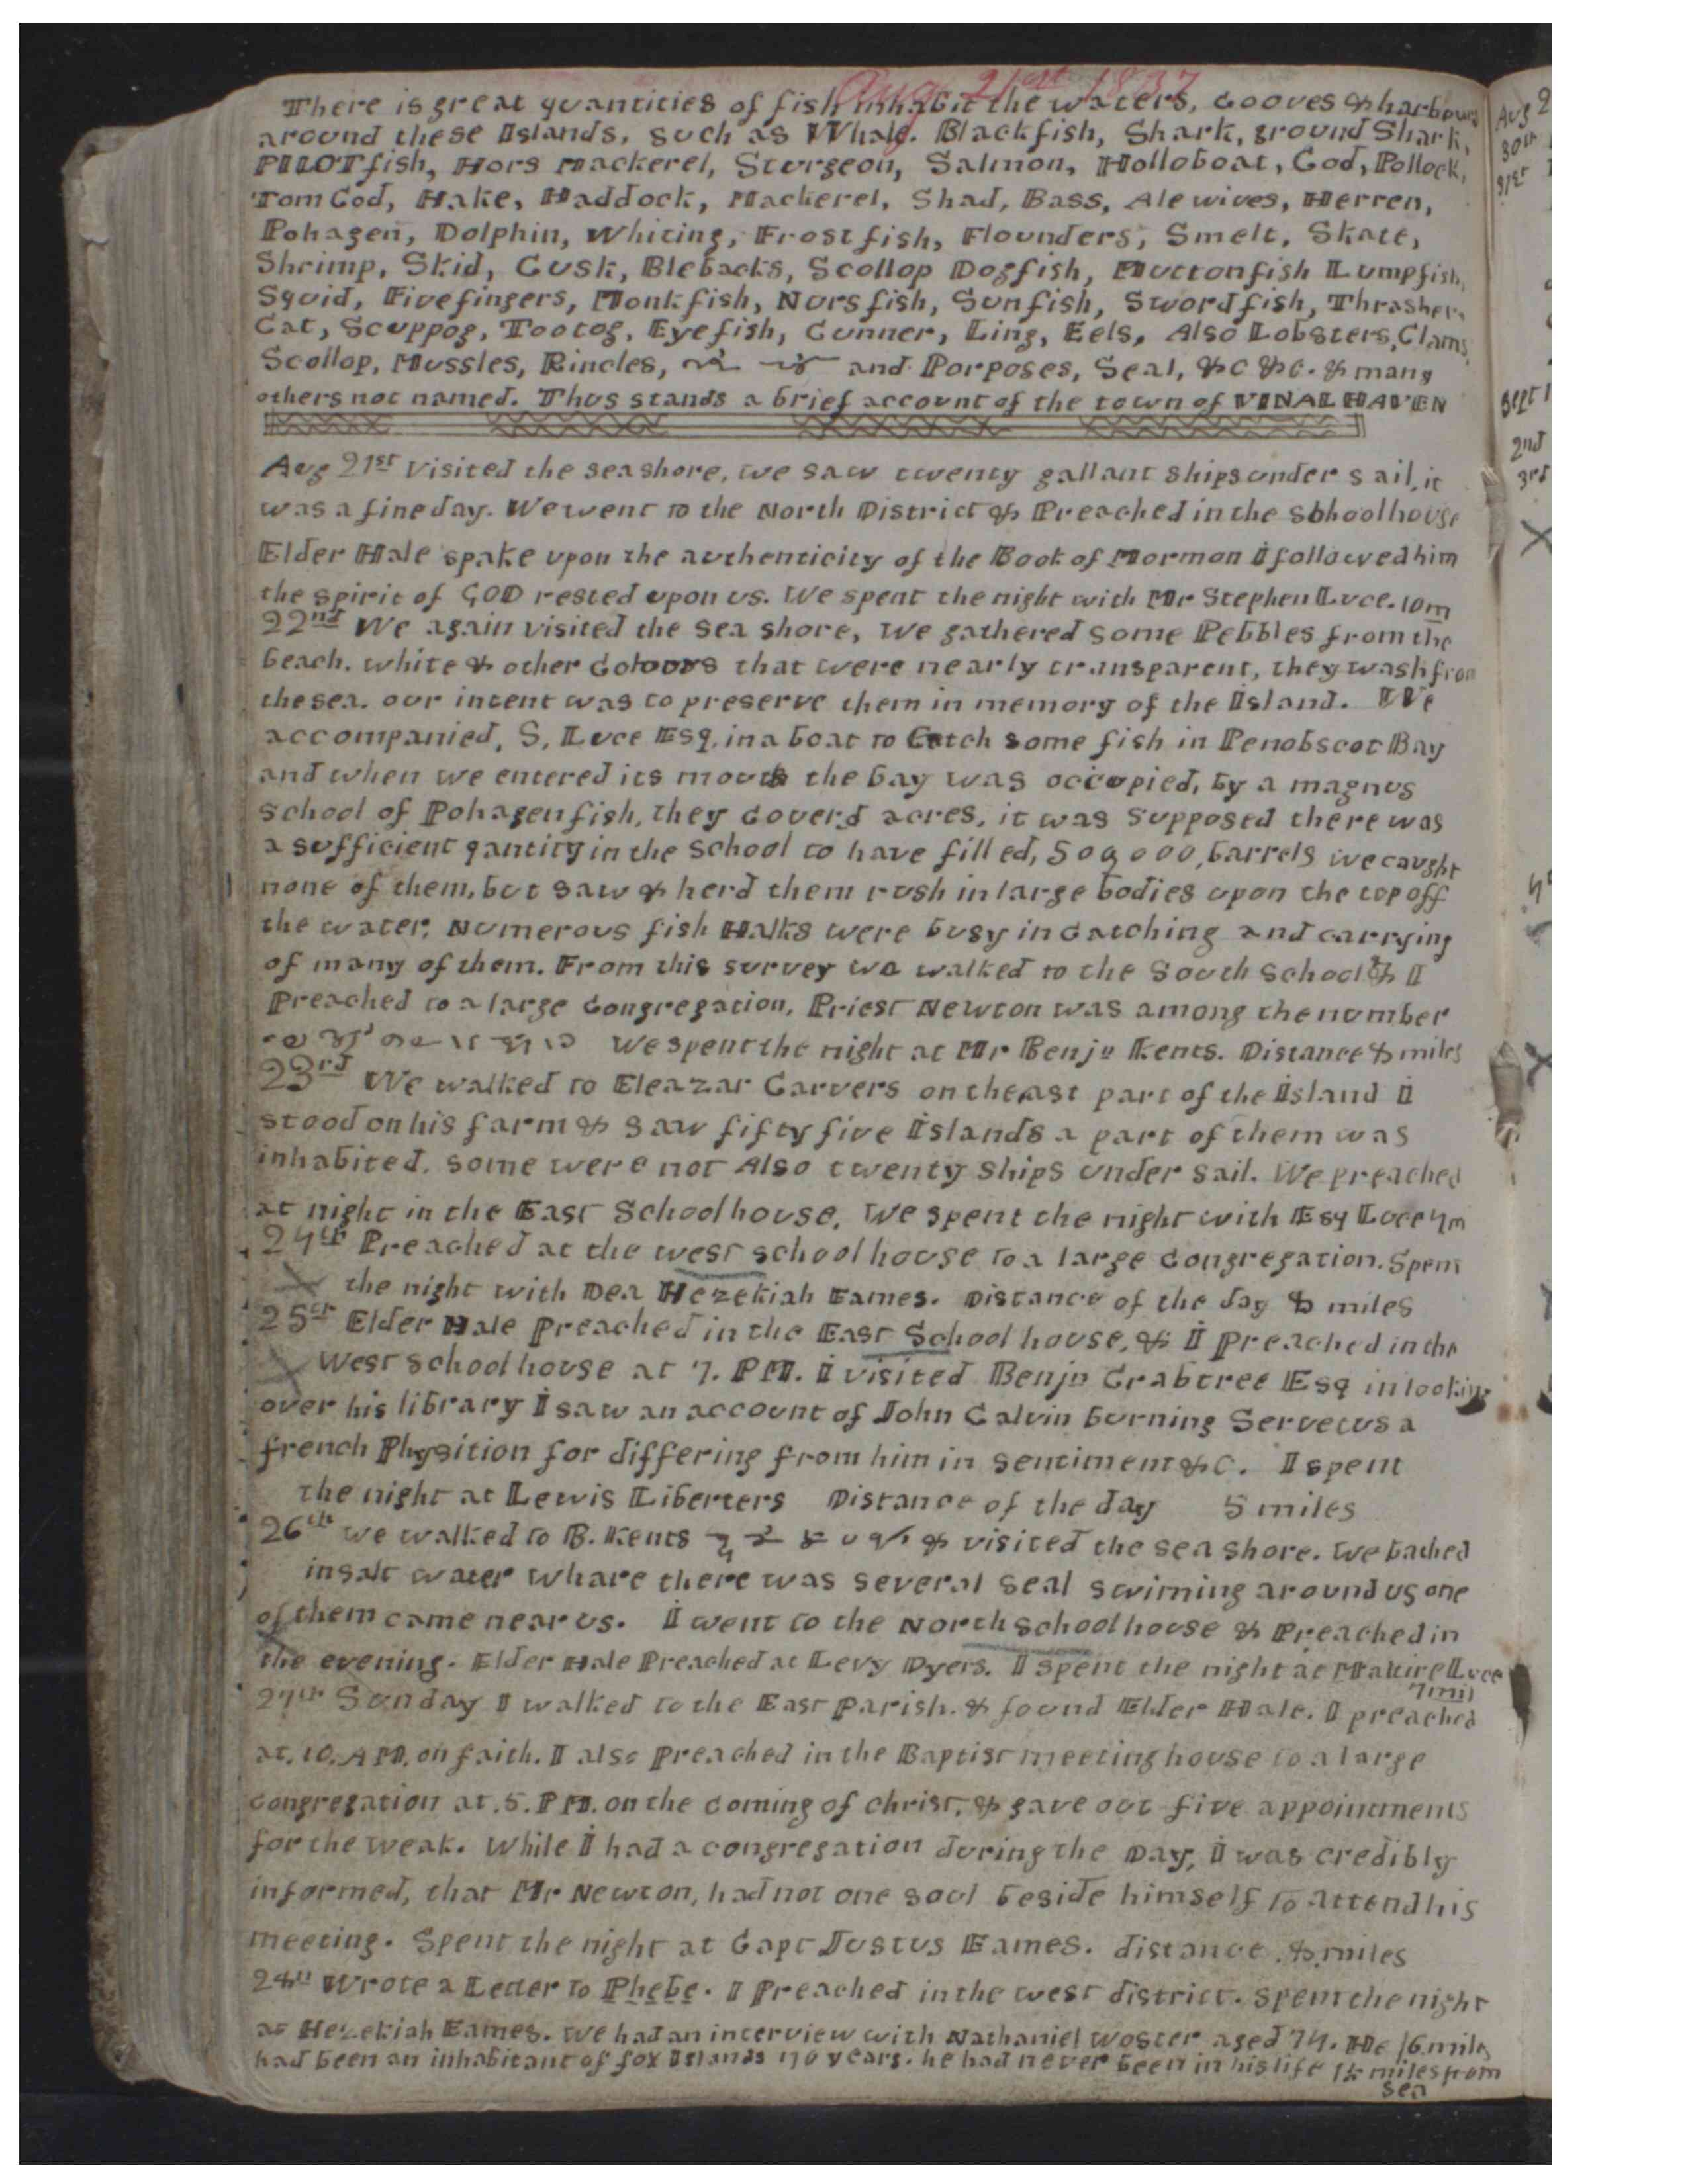 Aug 21st 1837
There is great quantities of fish inhabit the waters, Cooves & harbours
around these Islands, such as Whale. Blackfish, Shark, ground Shark,
PILOT fish, Hors Mackerel, Sturgeon, Salmon, Holloboat, Cod, Pollock,
Tom Cod, Hake, Haddock, Mackerel, Shad, Bass, Alewives, Herren,
Pohagen, Dolphin, Whiting, Frost fish, Flounders, Smelt, Skate,
Shrimp, Skid, Cusk, Blebacks, Scollop Dogfish, Muttonfish Lumpfish,
Squid, Fivefingers, Monkfish, Nursfish, Sunfish, Swordfish, Thrasher,
Cat, Scuppog, Tootog, Eyefish, Cunner, Ling, Eels, Also Lobsters, Clams,
Scollop, Mussles, Rincles, and Porposes, Seal, &c &c. & many
others not named. Thus stands a brief account of the town of VINAL HAVEN
Aug 21st Visited the sea shore, we saw twenty gallant Ships under sail, it
was a fine day. We went to the North District & Preached in the schoolhouse
Elder Hale spake upon the authenticity of the Book of Mormon I followed him
the spirit of GOD rested upon us. We spent the night with Mr Stephen Luce. 10 m
22nd We again visited the sea shore, We gathered some Pebbles from the
beach. white & other Colours that were nearly transparent, they wash from
the sea. our intent was to preserve them in memory of the Island. We
accompanied, S. Luce Esq. in a boat to Catch some fish in Penobscot Bay
and when we entered its mouth the bay was occupied, by a magnus
School of Pohagen fish, they Coverd acres, it was Supposed there was
a sufficient qantity in the School to have filled, 500,000, barrels we caught
none of them, but saw & herd them rush in large bodies upon the top off
the water, Numerous fish Halks were busy in Catching and carrying
of many of them. From this survey we walked to the South School & I
Preached to a large Congregation, Priest Newton was among the number
We spent the night at Mr Benjn Kents. Distance 8 miles
23rd We walked to Eleazar Carvers on the east part of the Island I
stood on his farm & saw fifty five Islands a part of them was
inhabited, some were not Also twenty ships under sail. We preached
at night in the East School house, We spent the night with Esq Luce 4 m
24th Preached at the west school house to a large Congregation. Spent
the night with Dea Hezekiah Eames. Distance of the day 8 miles
25th Elder Hale Preached in the East School house, & I preached in the
West school house at 7. PM. I visited Benjn Crabtree Esq in looking
over his library I saw an account of John Calvin burning Servetus a
french Physition for differing from him in sentiment &c. I spent
the night at Lewis Liberters Distance of the day 5 miles
26th we walked to B. Kents & visited the sea shore. We bathed
in salt water whare there was several seal swiming around us one
of them came near us. I went to the North school house & Preached in
the evening. Elder Hale Preached at Levy Dyers. I spent the night at Luce
7 mil
27th Sunday I walked to the East parish. & found Elder Hale. I preached
at. 10. AM. on faith. I also preached in the Baptist meeting house to a large
congregation at. 5. PM. on the Coming of christ, & gave out five appointments
for the weak. While I had a congregation during the Day, I was credibly
informed, that Mr Newton, had not one soul beside himself to attend his
meeting. Spent the night at Capt Justus Eames. distance. 8. miles
28th Wrote a Letter to Phebe. I Preached in the west district. Spent the night
at Hezekiah Eames. We had an interview with Nathaniel Woster aged 74. He 6. miles
had been an inhabitant of fox Islands 70 years. he had never been in his life 1½ miles from
sea
Aug 2
30th
31st
Sept 1
2nd
3rd
4